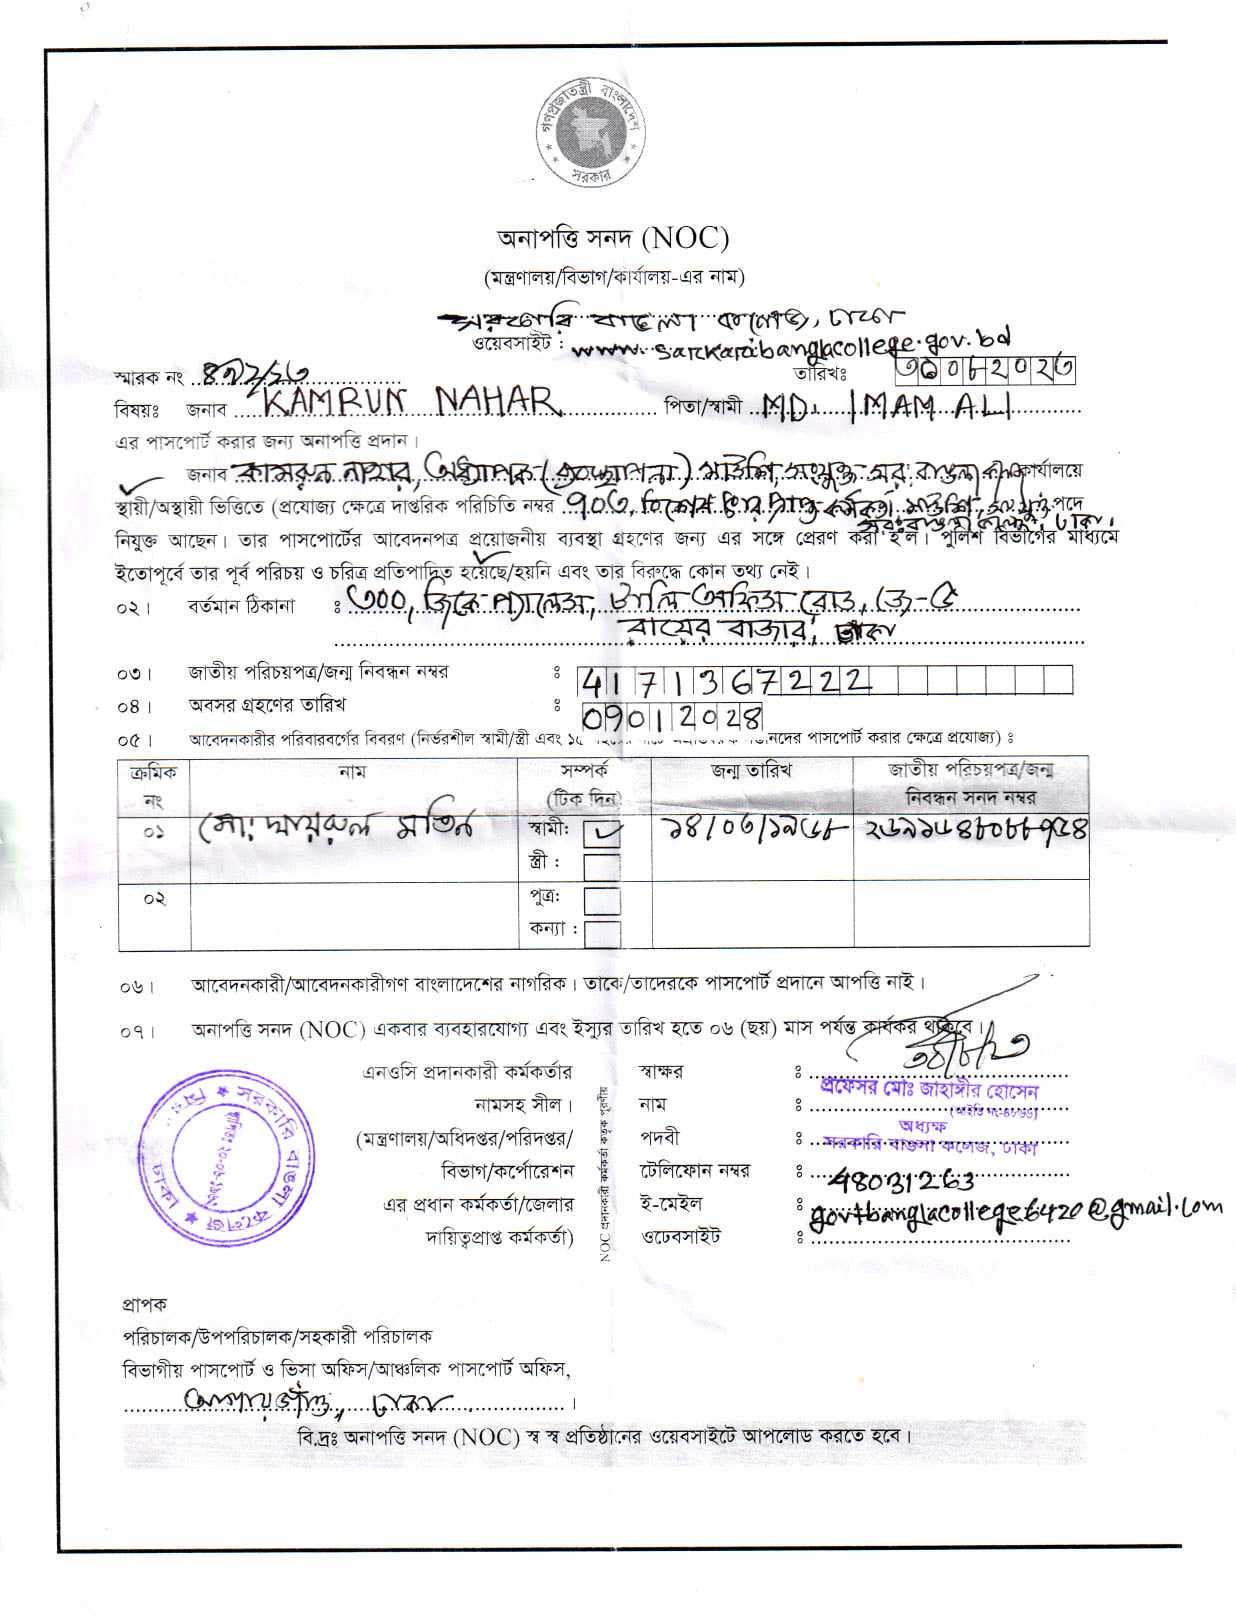 গণপ্রজাতন্ত্রী বাংলাদেশ
সরকার
অনাপত্তি সনদ (NOC)
(মন্ত্রণালয়/বিভাগ/কার্যালয়-এর নাম)
সরকারি বাঙলা কলেজ, ঢাকা
ওয়েবসাইট : www.sarkaribanglacollege.gov.bd
স্মারক নং ৪৯২/২৩ তারিখঃ
বিষয়ঃ জনাব KAMRUN NAHAR পিতা/স্বামী MD. IMAM ALI
এর পাসপোর্ট করার জন্য অনাপত্তি প্রদান।
জনাব কামরুন নাহার, অধ্যাপক মাউশি, সংযুক্ত কার্যালয়ে
স্থায়ী/অস্থায়ী ভিত্তিতে (প্রযোজ্য ক্ষেত্রে দাপ্তরিক পরিচিতি নম্বর ৭০৩, বিশেষ ভারপ্রাপ্ত কর্মকর্তা মাউশি, সংযুক্ত পদে
সরঃ বাঙলা কলেজ, ঢাকা।
নিযুক্ত আছেন। তার পাসপোর্টের আবেদনপত্র প্রয়োজনীয় ব্যবস্থা গ্রহণের জন্য এর সঙ্গে প্রেরণ করা হ'ল। পুলিশ বিভাগের মাধ্যমে
ইতোপূর্বে তার পূর্ব পরিচয় ও চরিত্র প্রতিপাদিত হয়েছে/হয়নি এবং তার বিরুদ্ধে কোন তথ্য নেই।
০২। বর্তমান ঠিকানা ঃ ৩০০, জিকে প্যালেস, টালি অফিস রোড, জে-৫
রায়ের বাজার, ঢাকা
০৩। জাতীয় পরিচয়পত্র/জন্ম নিবন্ধন নম্বর ঃ 4171367222
০৪। অবসর গ্রহণের তারিখ ঃ 09012028
০৫। আবেদনকারীর পরিবারবর্গের বিবরণ (নির্ভরশীল স্বামী/স্ত্রী এবং ১৫ পাসপোর্ট করার ক্ষেত্রে প্রযোজ্য) ঃ
ক্রমিক নাম সম্পর্ক জন্ম তারিখ জাতীয় পরিচয়পত্র/জন্ম
নং (টিক দিন) নিবন্ধন সনদ নম্বর
০১ মো: খায়রুল মতিন স্বামী: ১৪/০৩/১৯৬৮ ২৬৯১৬৪৮০৮৮৭৫৪
স্ত্রী :
০২ পুত্র:
কন্যা :
০৬। আবেদনকারী/আবেদনকারীগণ বাংলাদেশের নাগরিক। তাকে/তাদেরকে পাসপোর্ট প্রদানে আপত্তি নাই।
০৭। অনাপত্তি সনদ (NOC) একবার ব্যবহারযোগ্য এবং ইস্যুর তারিখ হতে ০৬ (ছয়) মাস পর্যন্ত কার্যকর থাকিবে।
এনওসি প্রদানকারী কর্মকর্তার স্বাক্ষর ঃ
প্রফেসর মোঃ জাহাঙ্গীর হোসেন
নামসহ সীল। নাম ঃ
অধ্যক্ষ
(মন্ত্রণালয়/অধিদপ্তর/পরিদপ্তর/ পদবী ঃ সরকারি বাঙলা কলেজ, ঢাকা
বিভাগ/কর্পোরেশন টেলিফোন নম্বর ঃ 48031263
এর প্রধান কর্মকর্তা/জেলার ই-মেইল ঃ govtbanglacollege6420@gmail.com
দায়িত্বপ্রাপ্ত কর্মকর্তা) ওয়েবসাইট ঃ
NOC প্রদানকারী কর্মকর্তা কর্তৃক পূরণীয়
সরকারি বাঙলা কলেজ
প্রাপক
পরিচালক/উপপরিচালক/সহকারী পরিচালক
বিভাগীয় পাসপোর্ট ও ভিসা অফিস/আঞ্চলিক পাসপোর্ট অফিস,
আগারগাঁও, ঢাকা।
বি.দ্রঃ অনাপত্তি সনদ (NOC) স্ব স্ব প্রতিষ্ঠানের ওয়েবসাইটে আপলোড করতে হবে।